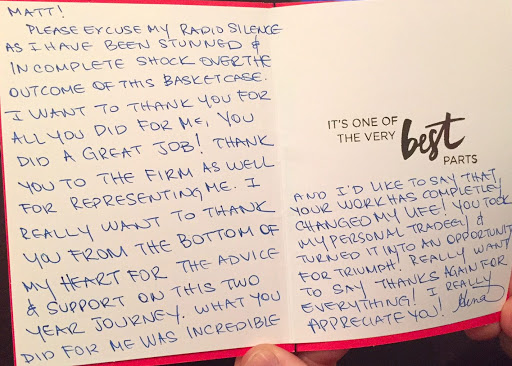 MATT!
PLEASE EXCUSE MY RADIO SILENCE
AS I HAVE BEEN STUNNED &
IN COMPLETE SHOCK OVER THE
OUTCOME OF THIS BASKETCASE.
I WANT TO THANK YOU FOR
ALL YOU DID FOR ME, YOU
DID A GREAT JOB! THANK
YOU TO THE FIRM AS WELL
FOR REPRESENTING ME. I
REALLY WANT TO THANK
YOU FROM THE BOTTOM OF
MY HEART FOR THE ADVICE
& SUPPORT ON THIS TWO
YEAR JOURNEY. WHAT YOU
DID FOR ME WAS INCREDIBLE
IT'S ONE OF
THE VERY best
PARTS
AND I'D LIKE TO SAY THAT,
YOUR WORK HAS COMPLETLEY
CHANGED MY LIFE! YOU TOOK
MY PERSONAL TRADEGY &
TURNED IT INTO AN OPPORTUNIT
FOR TRIUMPH. REALLY WANT
TO SAY THANKS AGAIN FOR
EVERYTHING! I REALLY
APPRECIATE YOU!